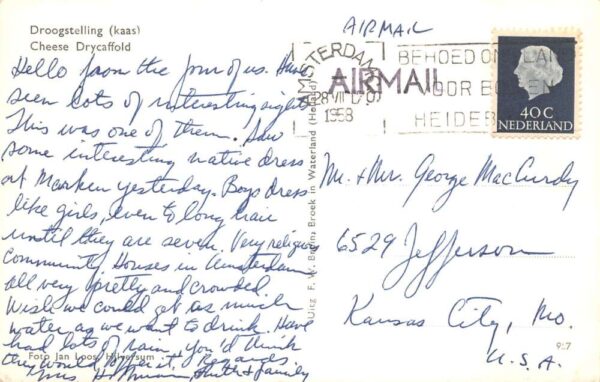 Droogstelling (kaas)
Cheese Drycaffold
Hello from the four of us. Have
seen lots of interesting sights
This was one of them. Saw
some interesting native dress
at Marken yesterday. Boys dress
like girls, even to long hair
until they are seven. Very religious
community. Houses in Amsterdam
all very pretty and crowded.
Wish we could get as much
water, as we want to drink. Have
had lots of rain you'd think
they would
Regards
Smith & family
Foto Jan Loos, Hilversum
Uitg. F. W. Broek in Waterland (Holland)
AIRMAIL
AMSTERDAM
28 VII
1958
AIRMAIL
BEHOED ON
OOR BO
HEIDEB
40 C
NEDERLAND
Mr. + Mrs. George MacCurdy
6529 Jefferson
Kansas City, Mo.
U.S.A.